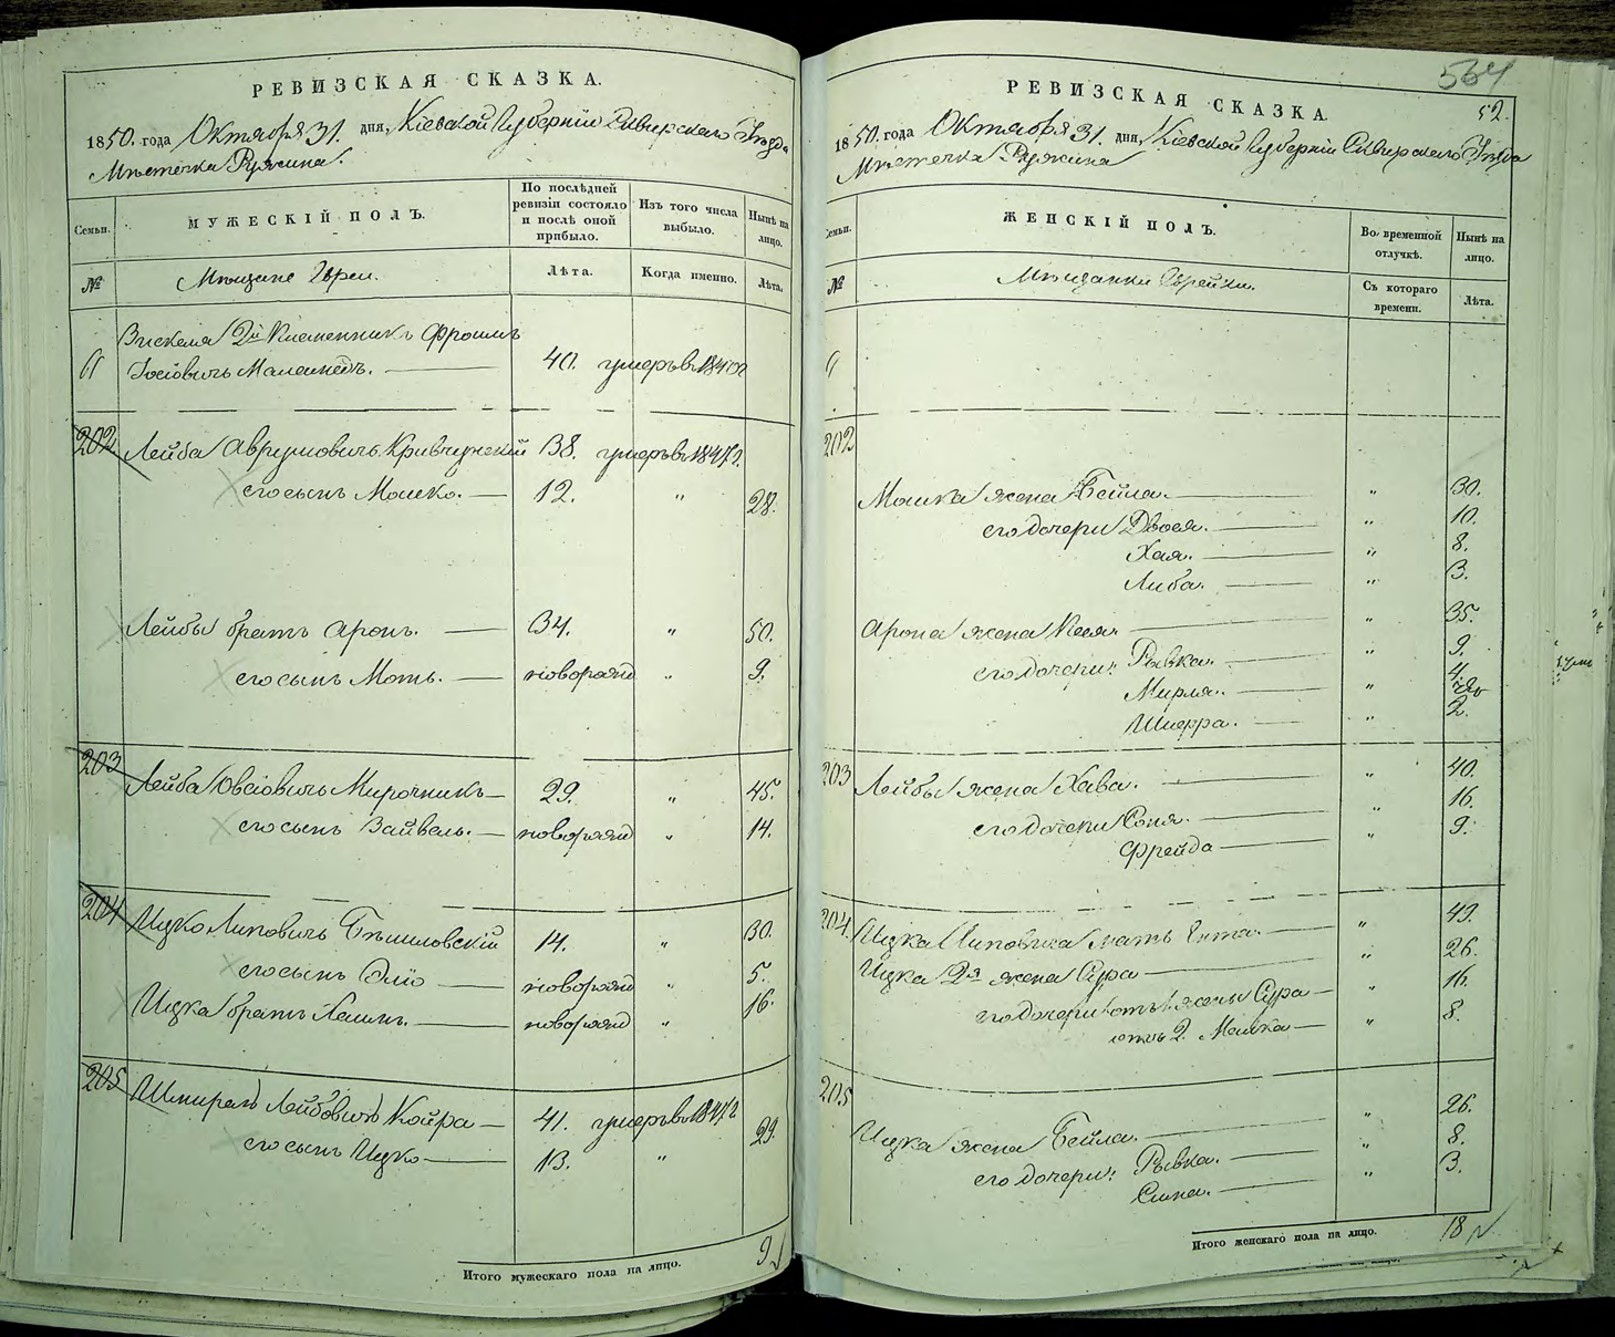 РЕВИЗСКАЯ СКАЗКА.
1850. года Октября 31. дня, Кіевской Губерніи Сквирскаго Уѣзда
Мѣстечка Ружина.
Семьи.
МУЖЕСКІЙ ПОЛЪ.
По послѣдней ревизіи состояло и послѣ оной прибыло.
Изъ того числа выбыло.
Нынѣ на лицо.
№
Мѣщане Евреи.
Лѣта.
Когда именно.
Лѣта.
2й Племенникъ Фроимъ
Іосіовичъ Маламедъ. 40. умеръ въ
202 Лейба Аврумовичъ Кривчунскій 38. умеръ въ 1847 г.
его сынъ Мошко. 12. " 28.
Лейбы братъ Аронъ. 34. " 50.
его сынъ Моть. новорожд " 9.
203 Лейба Овсіовичъ Мирочникъ 29. " 45.
его сынъ Вайвель. новорожд " 14.
204 Ицко Липовичъ Бѣлиловскій 14. " 30.
его сынъ Эліо новорожд " 5.
Ицка братъ Хаимъ. новорожд " 16.
205 Шмирель Лейбовичъ Койра 41. умеръ въ 1847 г
его сынъ Ицко 13. " 29.
Итого мужескаго пола на лицо. 9
564
52.
РЕВИЗСКАЯ СКАЗКА.
1850. года Октября 31. дня, Кіевской Губерніи Сквирскаго Уѣзда
Мѣстечка Ружина
Семьи.
ЖЕНСКІЙ ПОЛЪ.
Во временной отлучкѣ.
Нынѣ на лицо.
№
Мѣщанки Еврейки.
Съ котораго времени.
Лѣта.
202
Мошка жена Бейла. " 30.
его дочери Двося. " 10.
Хая. " 8.
Либа. " 3.
Арона жена Песя " 35.
его дочери: Рывка. " 9.
Мирля. " 4.
Шифра. " 2.
203 Лейбы жена Хава. " 40.
его дочери Соня. " 16.
Фрейда " 9.
204. Ицка Липовича мать Ента. " 49.
Ицка 2я жена Сура " 26.
его дочери отъ 1 жены Сура " 16.
отъ 2. Малка " 8.
205
Ицка жена Бейла. " 26.
его дочери: Рывка. " 8.
Сима. " 3.
Итого женскаго пола на лицо. 18